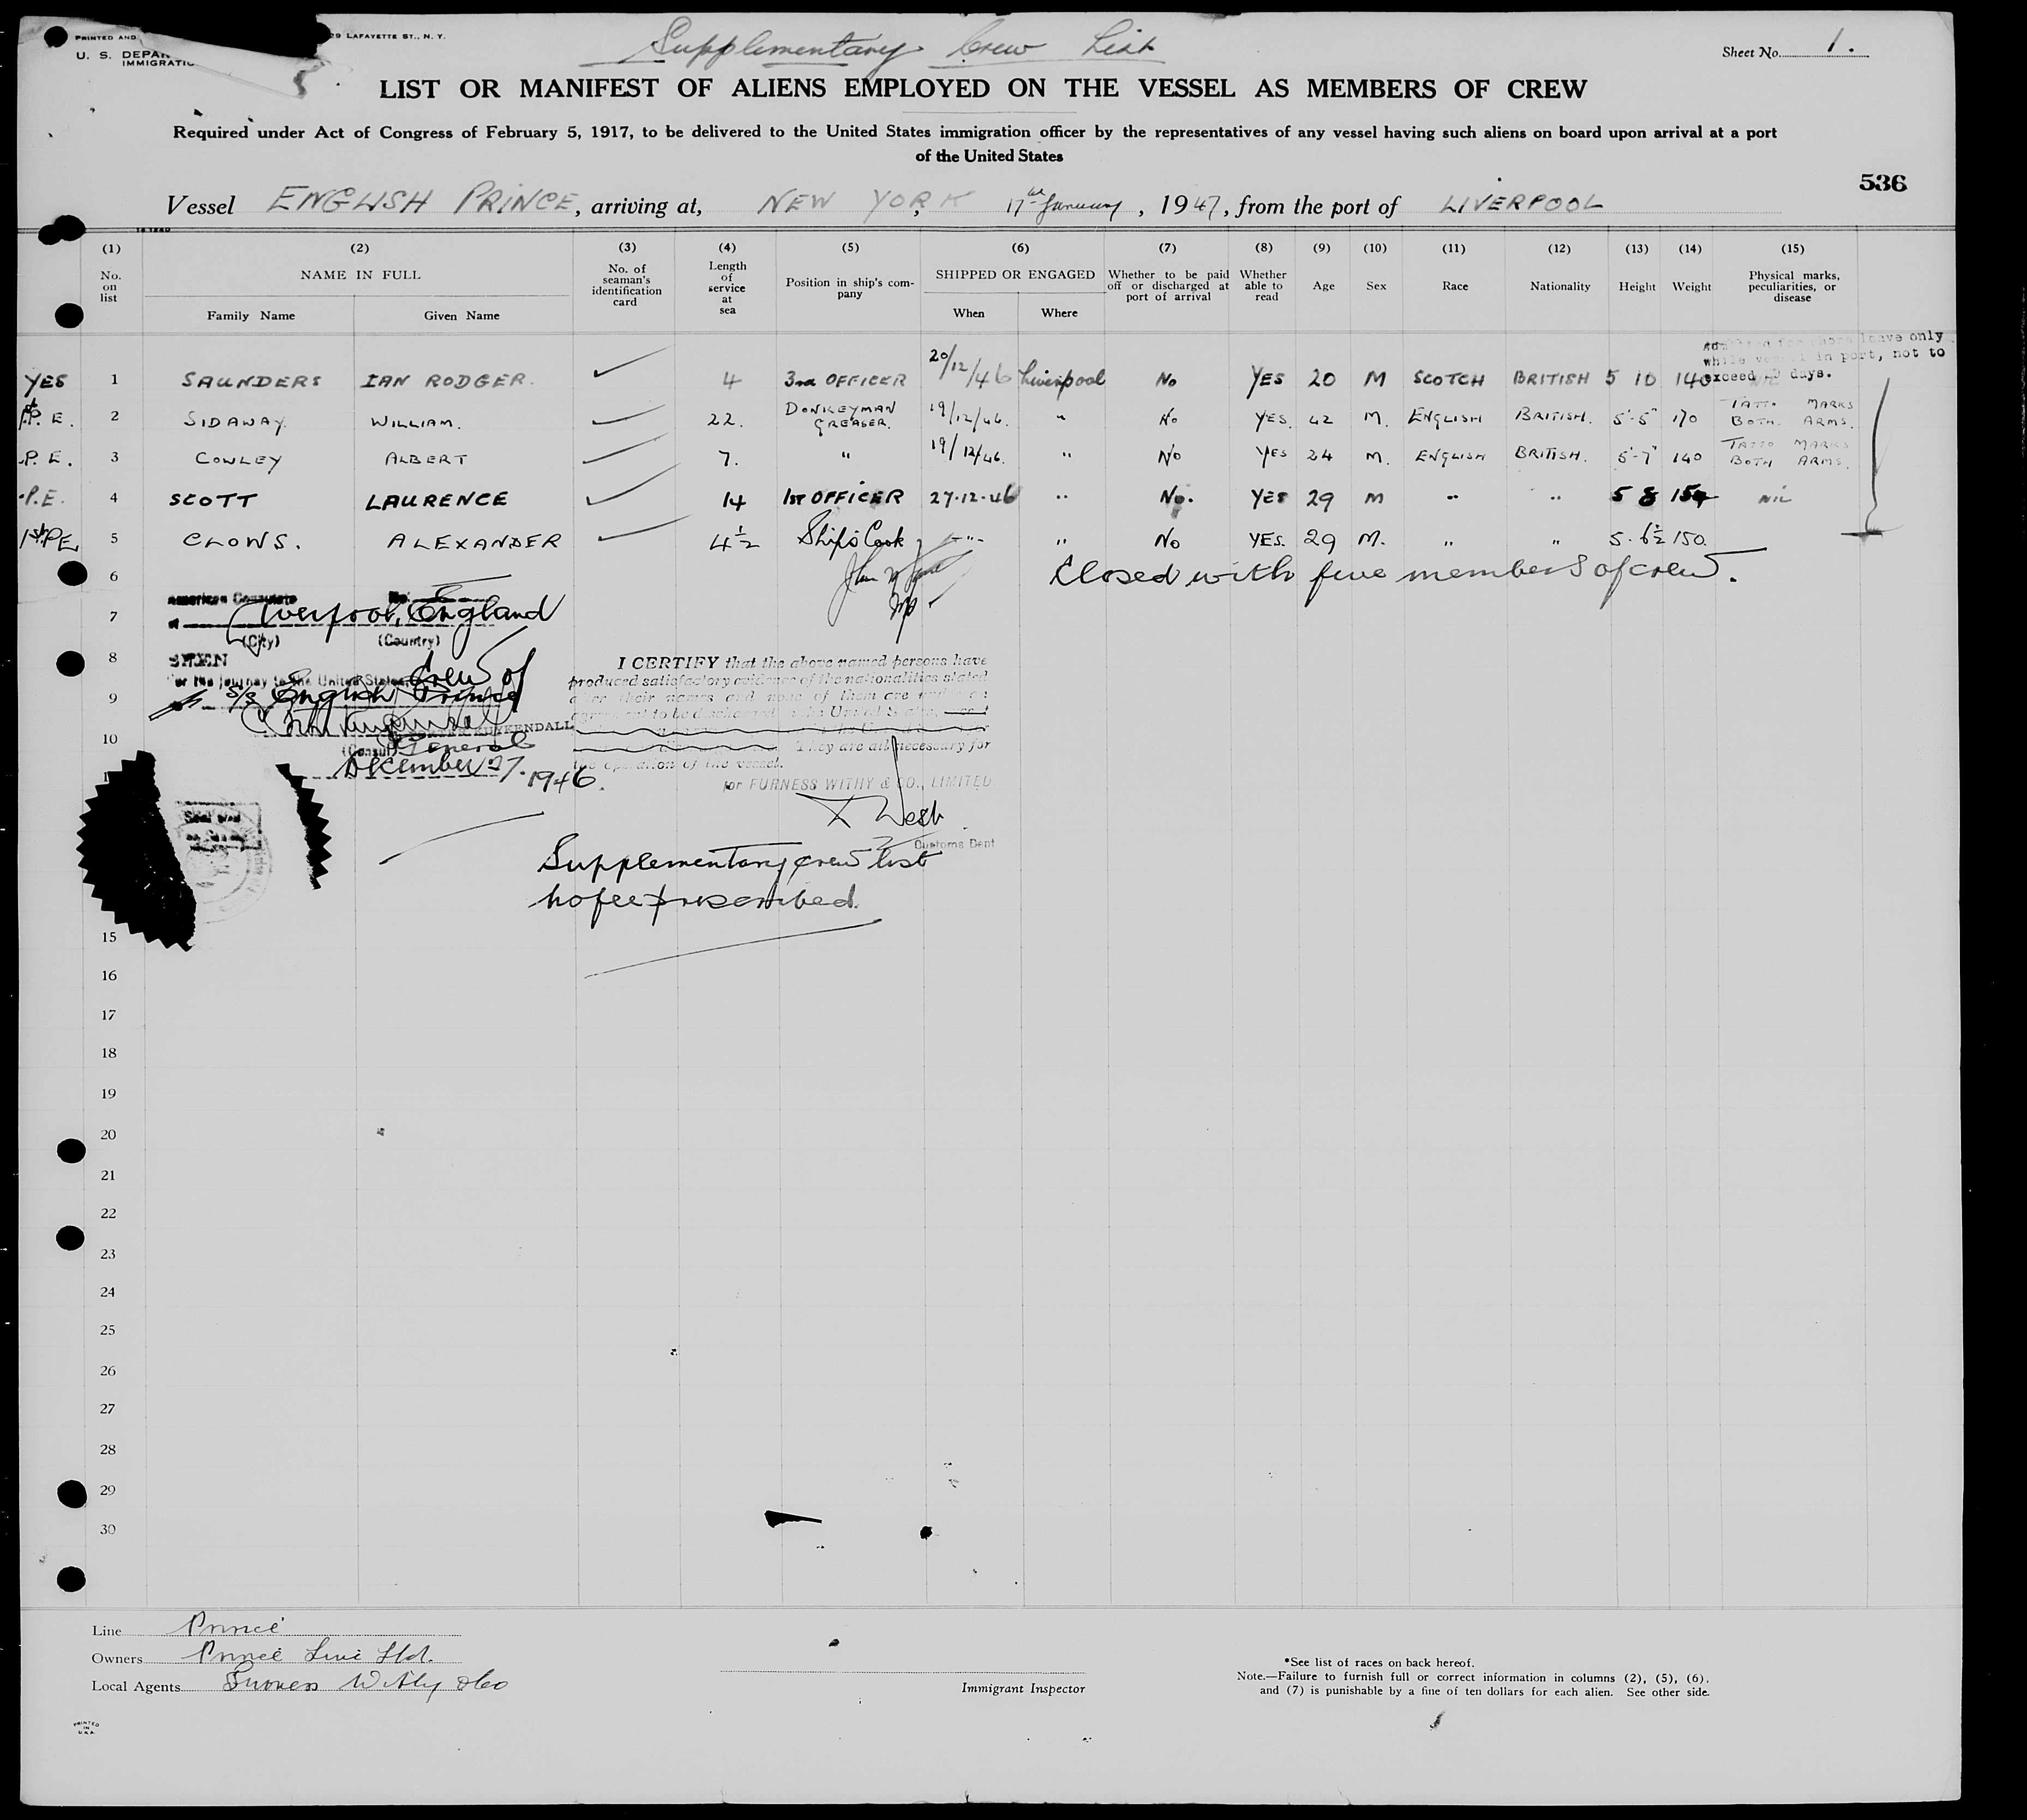 PRINTED AND
29 LAFAYETTE ST., N. Y.
U. S. DEPAR
IMMIGRATIO
Supplementary Crew List
Sheet No. 1.
LIST OR MANIFEST OF ALIENS EMPLOYED ON THE VESSEL AS MEMBERS OF CREW
Required under Act of Congress of February 5, 1917, to be delivered to the United States immigration officer by the representatives of any vessel having such aliens on board upon arrival at a port
of the United States
536
Vessel ENGLISH PRINCE, arriving at, NEW YORK, 17th January, 1947, from the port of LIVERPOOL
(1) (2) (3) (4) (5) (6) (7) (8) (9) (10) (11) (12) (13) (14) (15)
No. on list NAME IN FULL Family Name Given Name No. of seaman's identification card Length of service at sea Position in ship's company SHIPPED OR ENGAGED When Where Whether to be paid off or discharged at port of arrival Whether able to read Age Sex Race Nationality Height Weight Physical marks, peculiarities, or disease
leave only
while vessel in port, not to
exceed 29 days.
YES 1 SAUNDERS IAN RODGER. 4 3rd OFFICER 20/12/46 Liverpool No YES 20 M SCOTCH BRITISH 5 10 140
P.E. 2 SIDAWAY. WILLIAM. 22. DONKEYMAN GREASER. 19/12/46. " No YES. 42 M. ENGLISH BRITISH. 5'-5" 170 TATTO MARKS BOTH ARMS.
P.E. 3 COWLEY ALBERT 7. " 19/12/46. " No YES 24 M. ENGLISH BRITISH. 5'-7" 140 TATTO MARKS BOTH ARMS.
P.E. 4 SCOTT LAURENCE 14 1ST OFFICER 27.12.46 " No. YES 29 M " " 5 8 154 NIL
1st PE 5 CLOWS. ALEXANDER 4½ Ship's Cook " " No YES. 29 M. " " 5.6½ 150.
6 Closed with five members of crew.
American Consulate No.
7 Liverpool, England
(City) (Country)
8 SEEN
For the journey to the United States Crew of
9 S/S English Prince
KUYKENDALL
10 (Consul) General
December 27. 1946.
I CERTIFY that the above named persons have
produced satisfactory evidence of the nationalities stated
after their names and none of them are under an
agreement to be discharged in the United States, except
They are all necessary for
the operation of the vessel.
for FURNESS WITHY & CO., LIMITED
West
Customs Dept
Supplementary crew list
no fee prescribed.
15
16
17
18
19
20
21
22
23
24
25
26
27
28
29
30
Line Prince
Owners Prince Line Ltd.
Local Agents Furness Withy & Co
Immigrant Inspector
*See list of races on back hereof.
Note.—Failure to furnish full or correct information in columns (2), (5), (6),
and (7) is punishable by a fine of ten dollars for each alien. See other side.
PRINTED
IN
U.S.A.